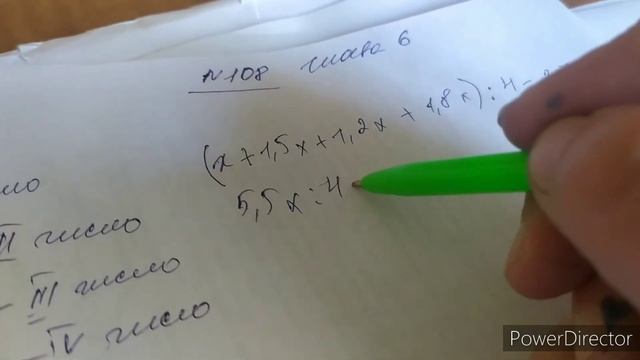 N108 глава 6
(x+1,5x+1,2x+1,8x):4-
5,5x:4
число
II число
- III число
IV число
PowerDirector